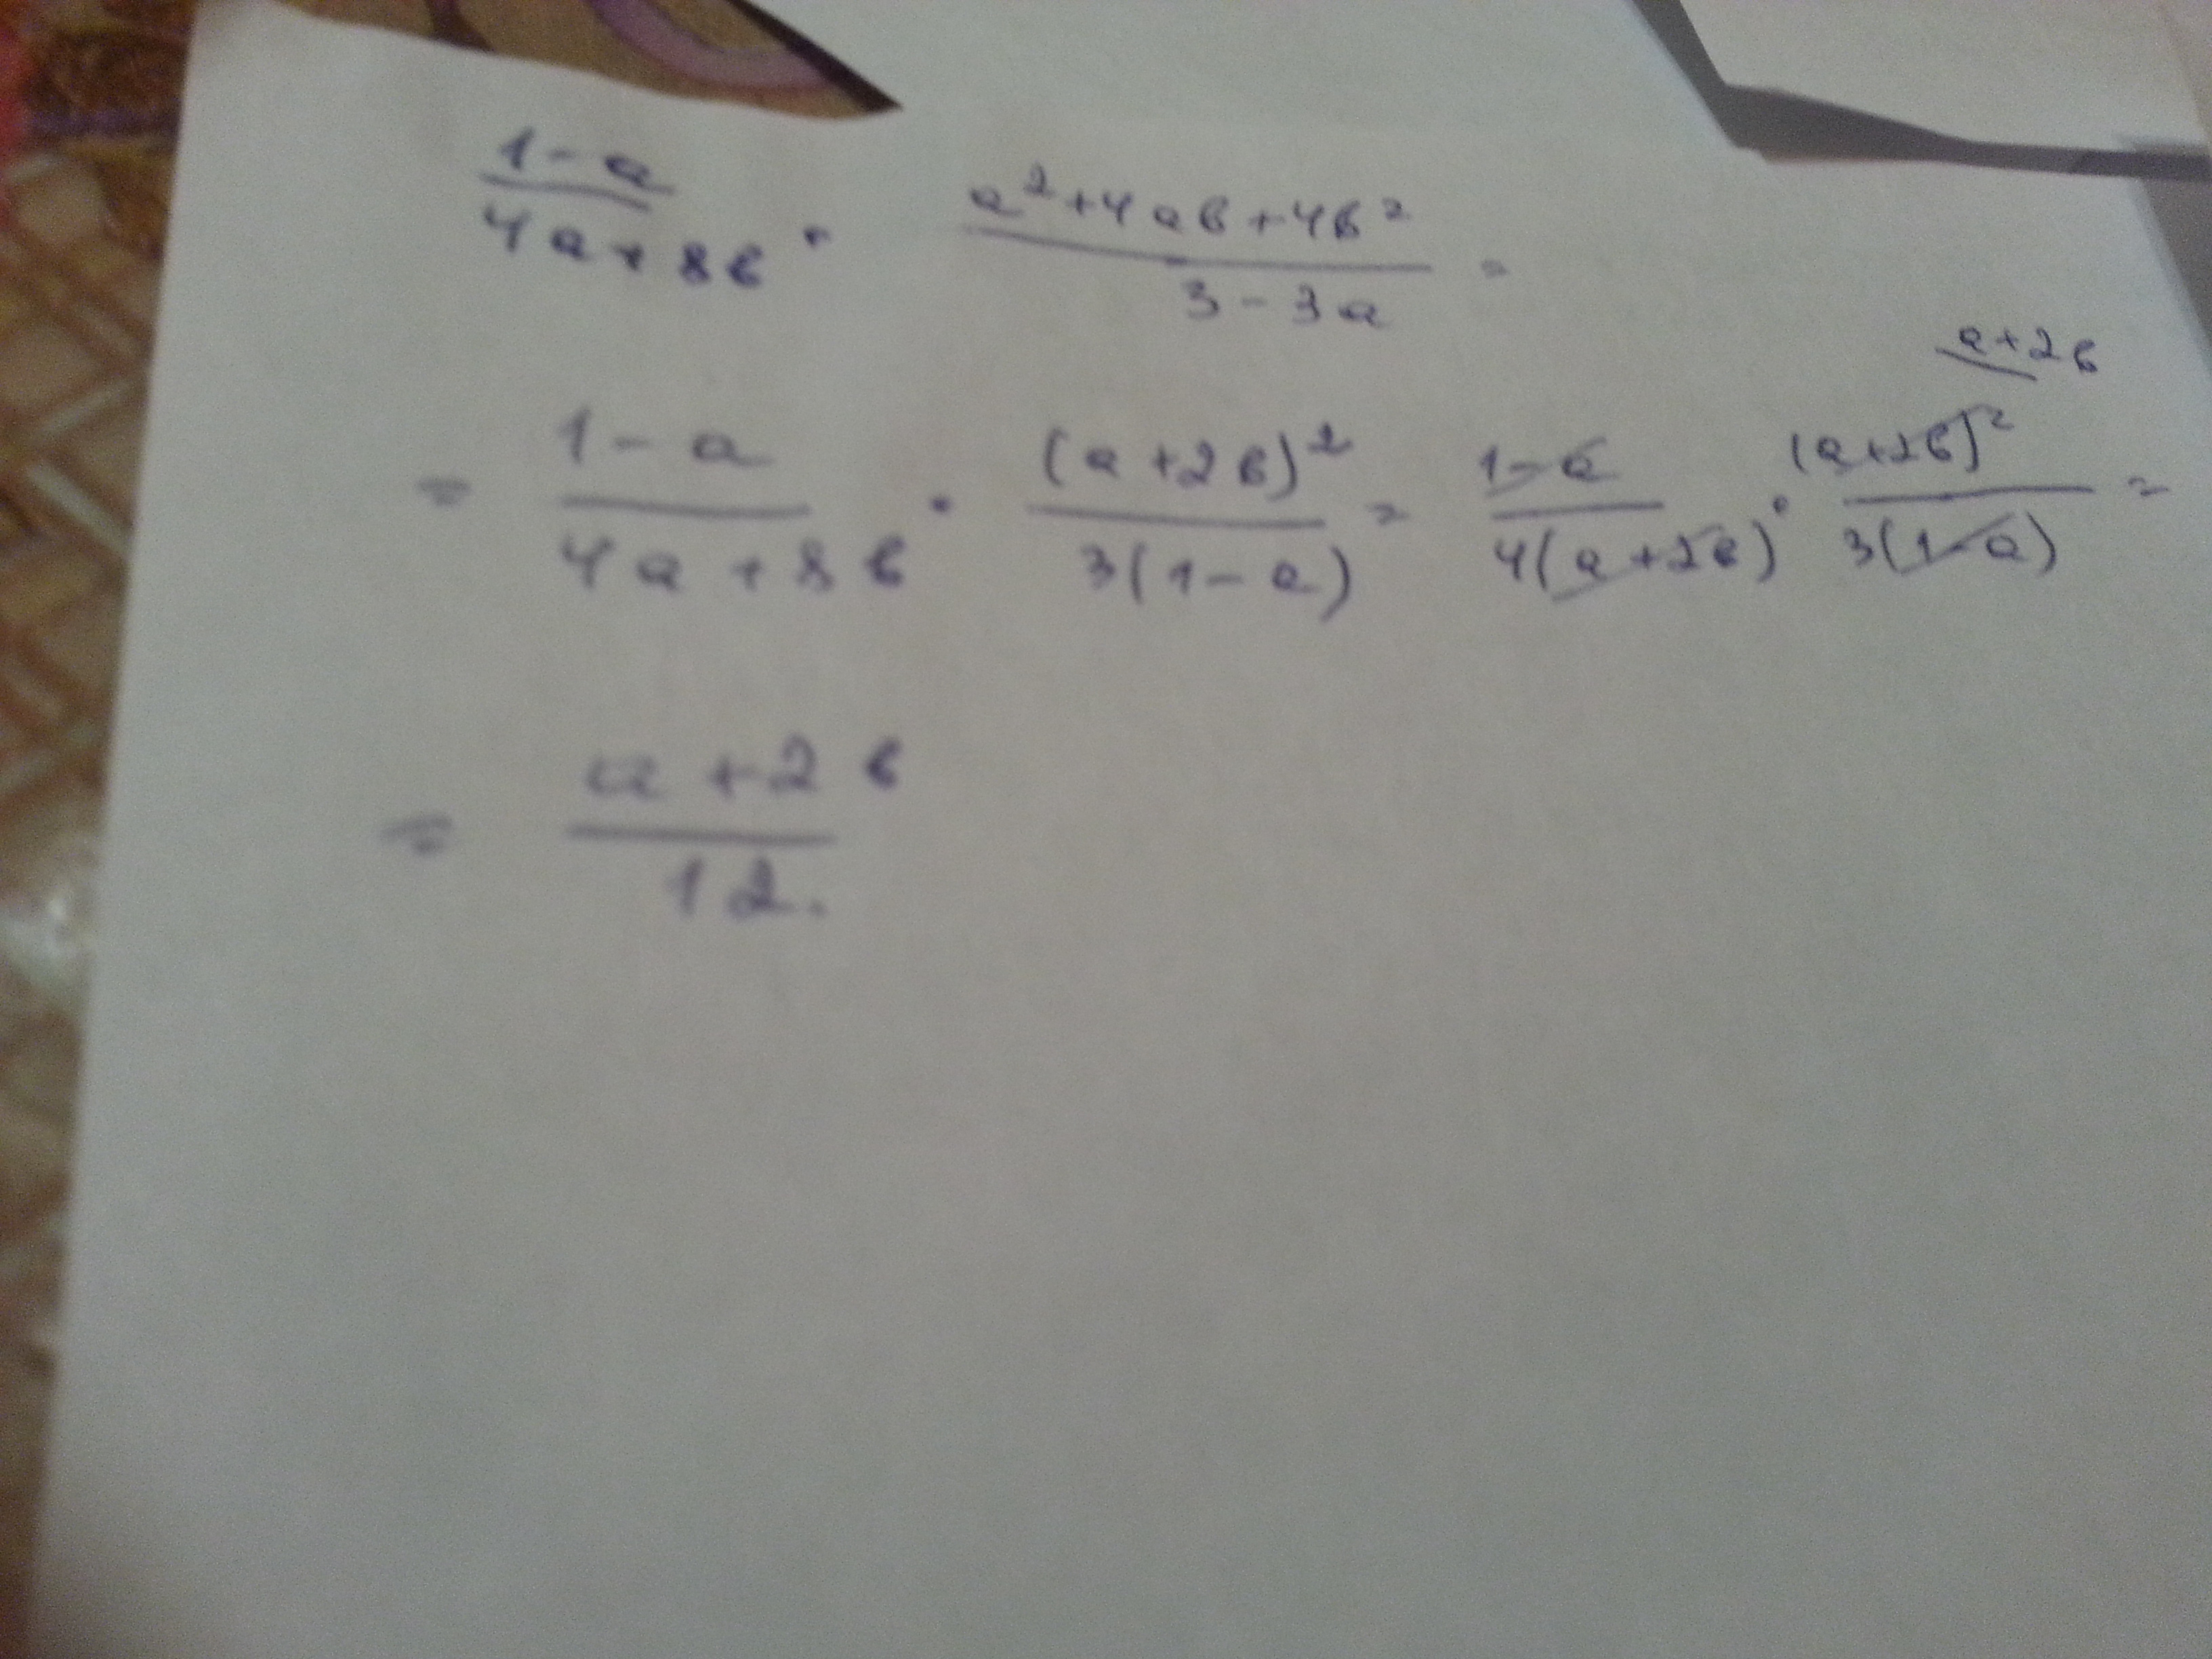 1-a / 4a+8в · a²+4aв+4в² / 3-3a =
a+2в
= 1-a / 4a+8в · (a+2в)² / 3(1-a) = 1-a / 4(a+2в) · (a+2в)² / 3(1-a) =
= a+2в / 12.